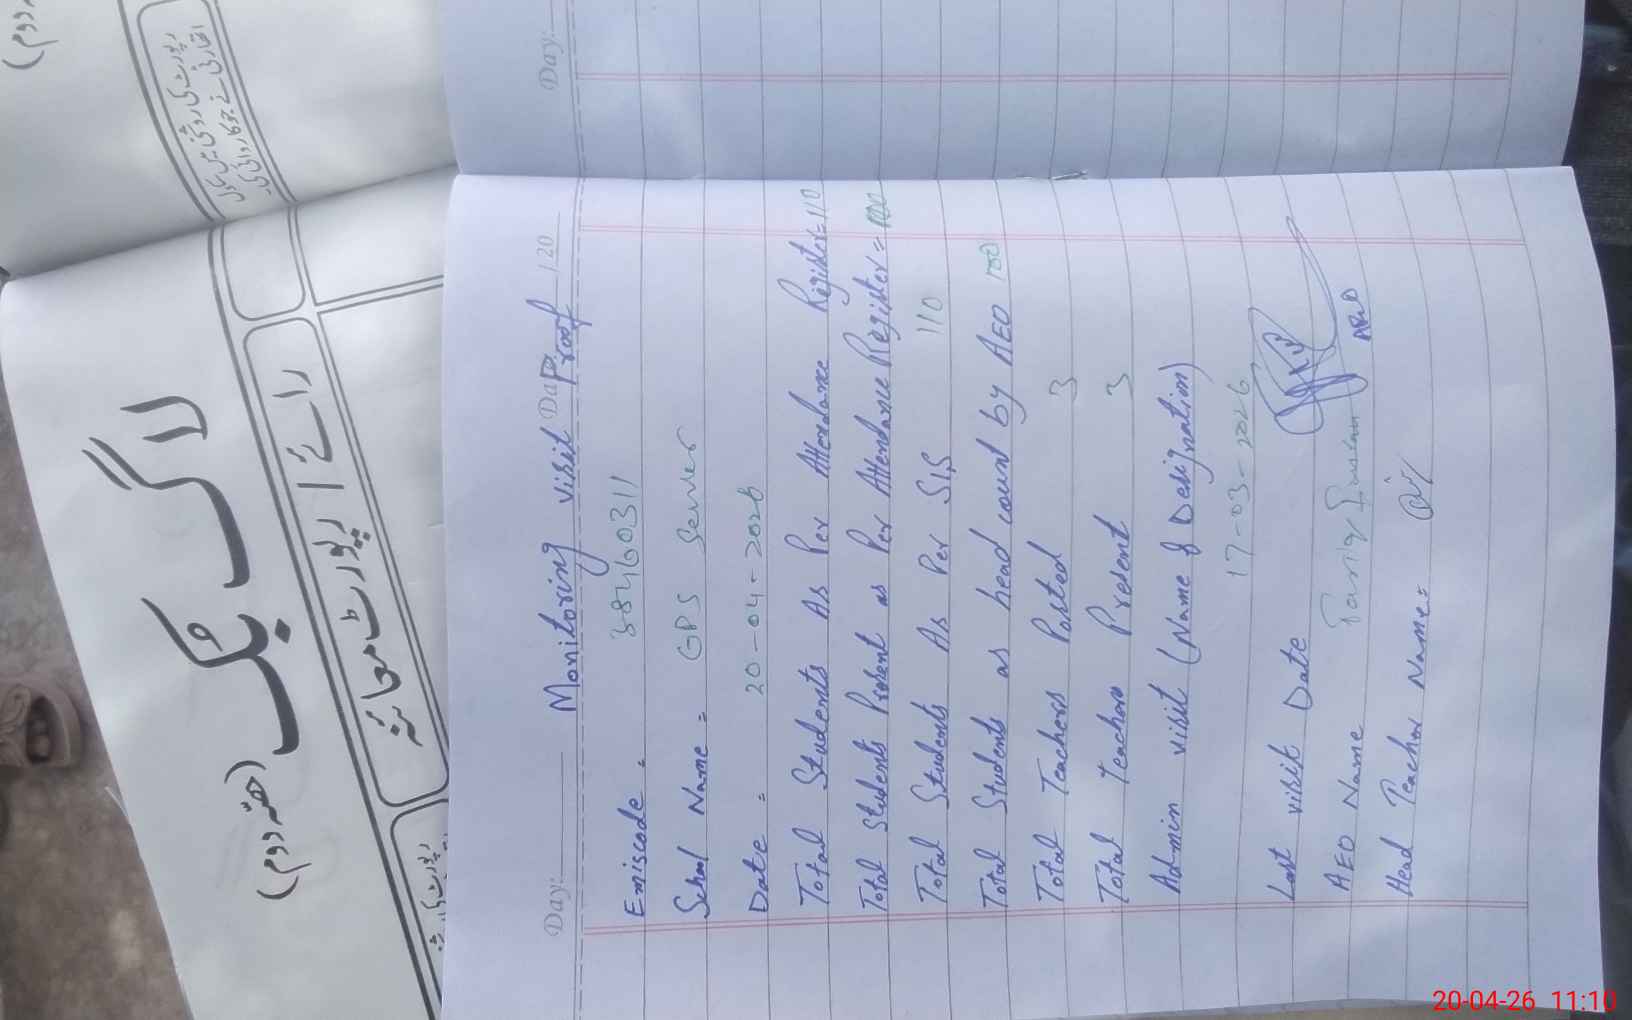 دوم)
رپورٹ کی روشنی میں سکول
اتھارٹی نے جو کارروائی کی
لاگ بک
(حصہ دوم)
رائے / رپورٹ معائنہ
Day:
Day: Da /20
Monitoring visit Proof
Emiscode = 38460311
School Name = GPS
Date = 20-04-2026
Total Students As Per Attendance Register=110
Total Students Present as Per Attendance Register= 100
Total Students As Per SIS 110
Total Students as head count by AEO 100
Total Teachers Posted 3
Total Teachers Present 3
Admin visit (Name & Designation)
Last visit Date 17-03-2026
AEO Name
AEO
Head Teacher Name=
20-04-26 11:10